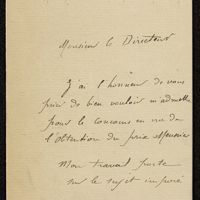 Monsieur le Directeur
J'ai l'honneur de vous
prier de bien vouloir m'admettre
pour le concours en vue de
l'obtention du prix Meunier
Mon travail porte
sur le sujet imposé